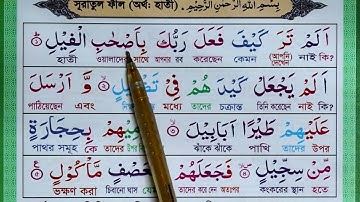 সূরাতুল ফীল (অর্থ: হাতী) بِسْمِ اللهِ الرَّحْمٰنِ الرَّحِيْمِ
اَلَمْ تَرَ كَيْفَ فَعَلَ رَبُّكَ بِاَصْحٰبِ الْفِيْلِ
হাতী ওয়ালাদের সাথে রব করেছেন কেমন (আপনি) দেখেন নাই কি?
اَلَمْ يَجْعَلْ كَيْدَ هُمْ فِيْ وَّ اَرْسَلَ
পাঠিয়েছেন এবং মধ্যে তাদের চক্রান্ত তিনি করেছেন নাই কি?
عَلَيْهِمْ طَيْرًا اَبَابِيْلَ بِحِجَارَةٍ
পাথর সমূহ কে তাদের ঝাঁকে ঝাঁকে পাখি তাদের উপর
مِّنْ سِجِّيْلٍ فَجَعَلَهُمْ عَصْفٍ مَّأْكُوْلٍ
ভক্ষণ করা চিবানো ঘাস তাদের করে দেন অতঃপর কংকরের স্থান হতে